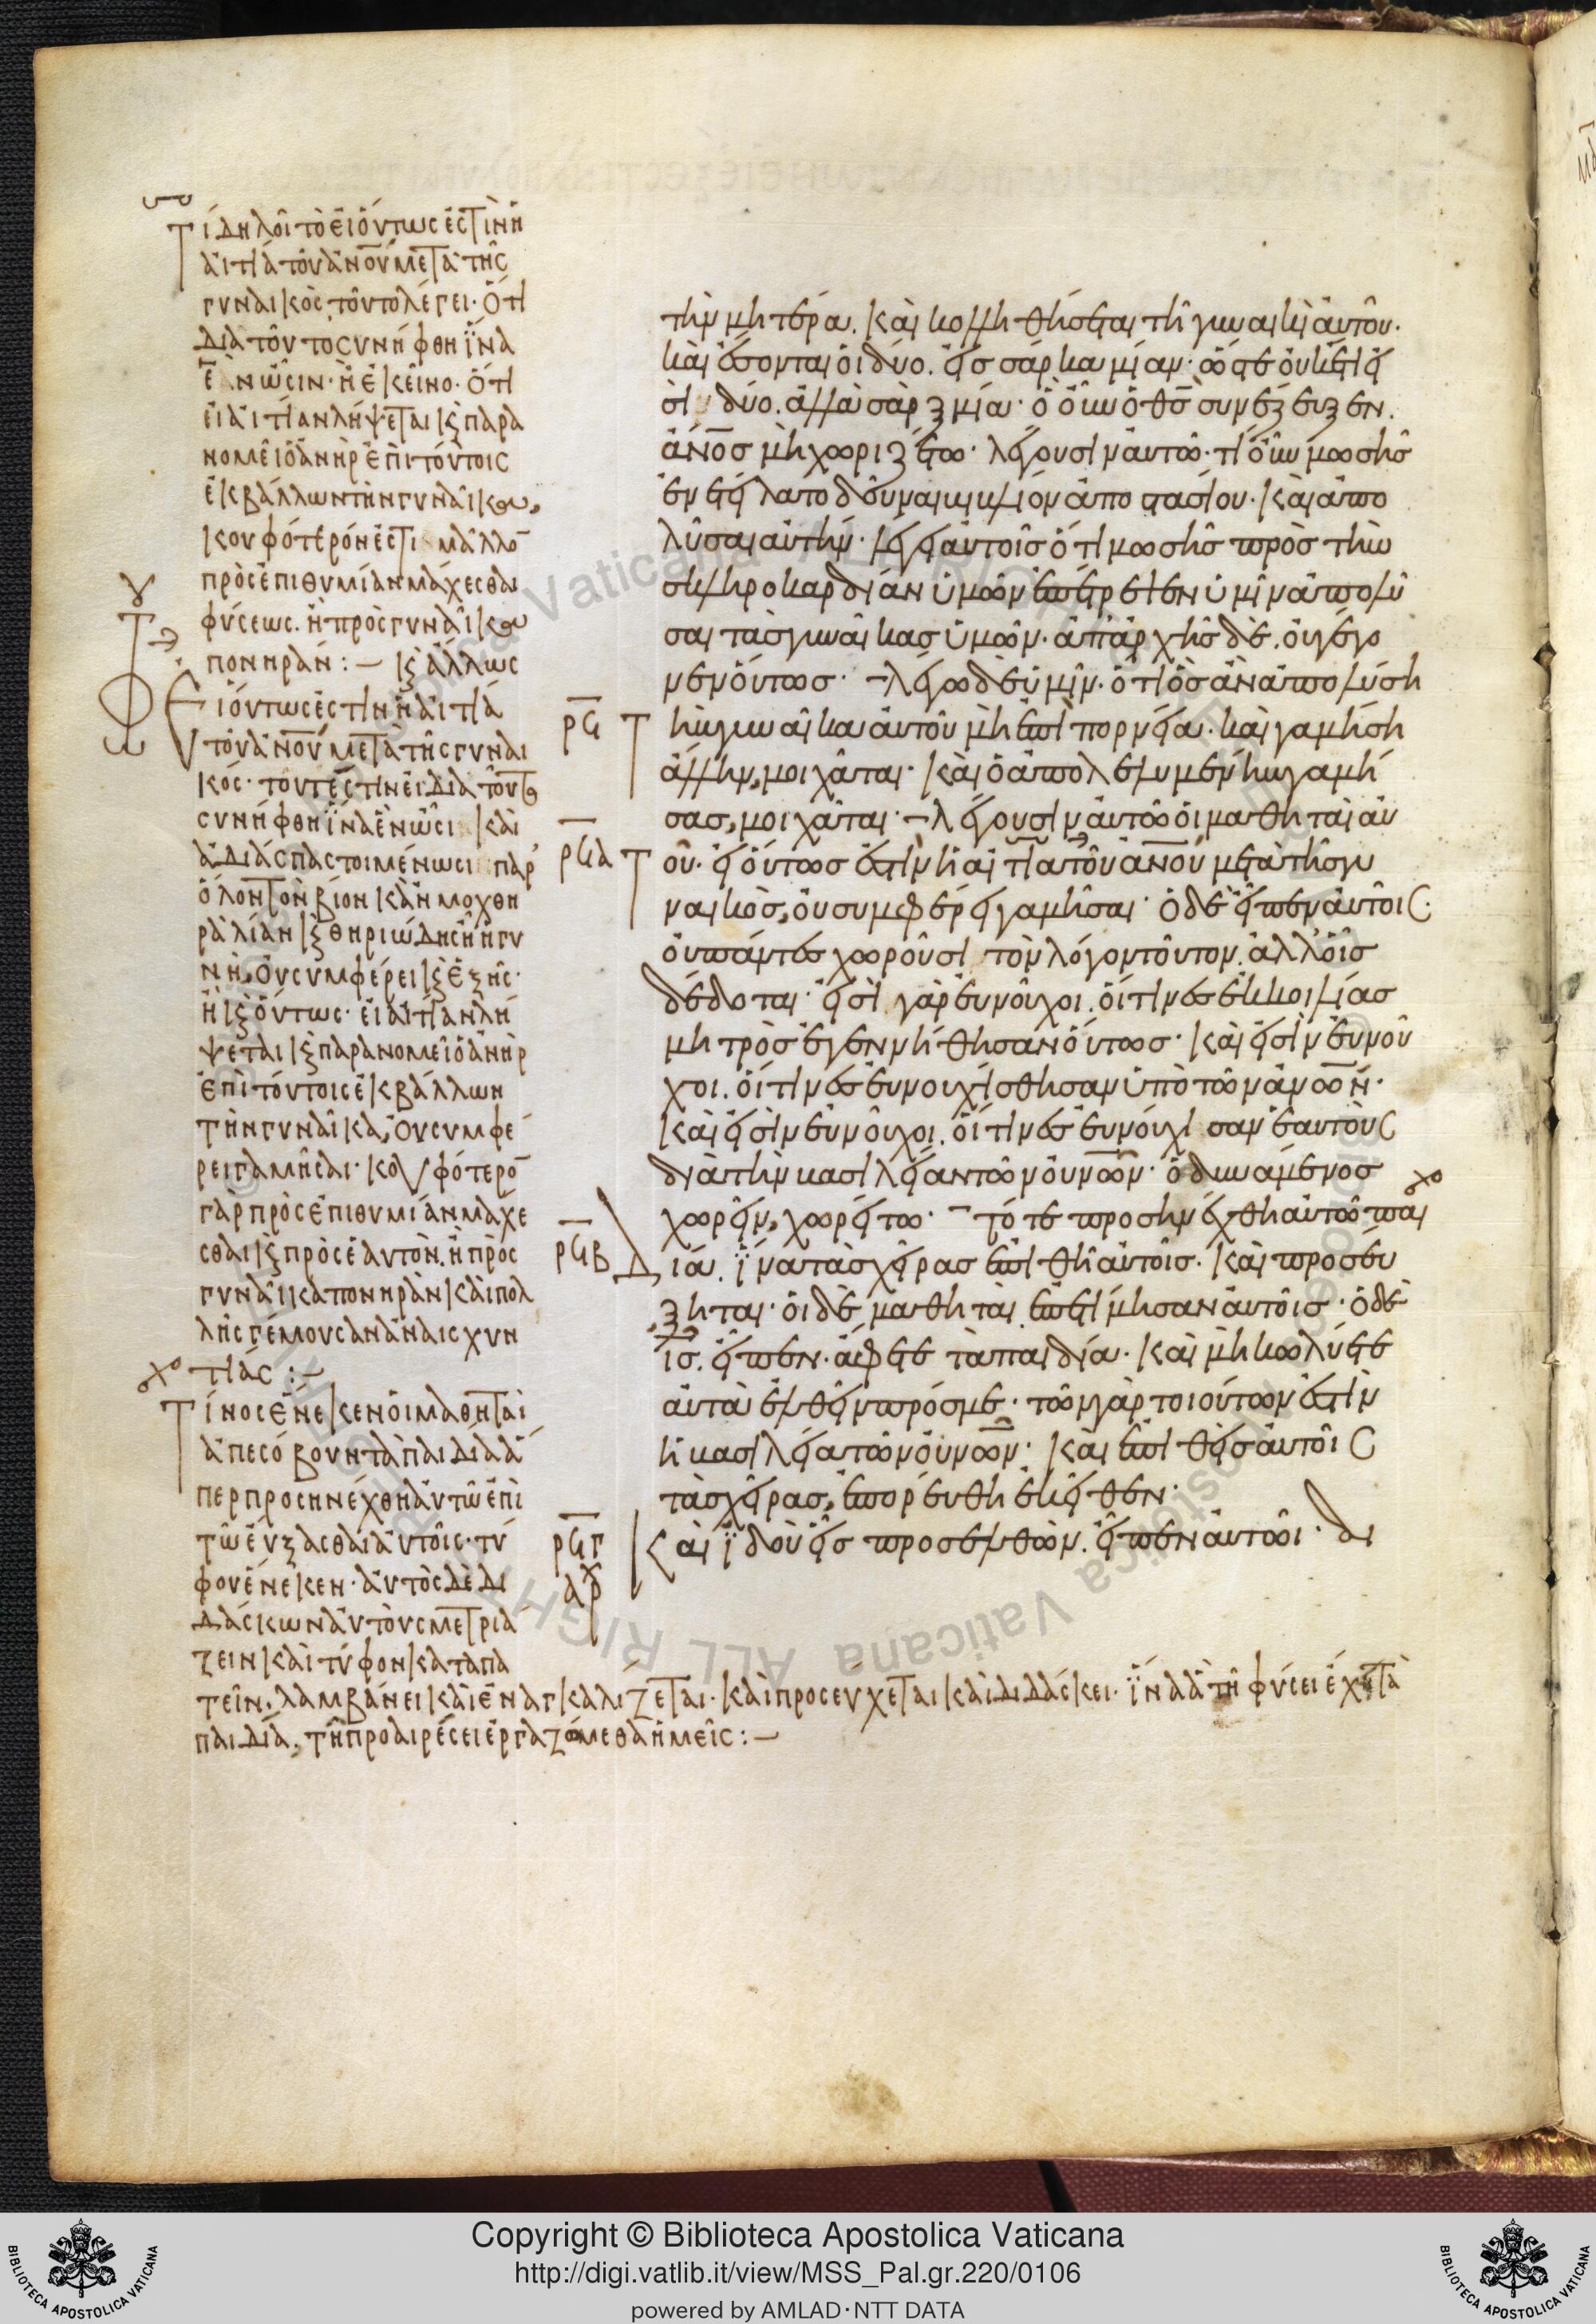 Τί δηλοῖ τὸ εἰ ὄντως ἐστὶν ἡ
αἰτία τοῦ ἀνου μετὰ τῆς
γυναικός· τοῦτο λέγει· ὅτι
διὰ τοῦτο συνήφθη ἵνα
ἓν ὦσιν· ἢ ἐκεῖνο· ὅτι
εἰ αἰτίαν λήψεται κ παρα
νομεῖ ὁ ἀνὴρ ἐπὶ τούτοις
ἐκβάλλων τὴν γυναῖκα,
κουφότερόν ἐστι μᾶλλο
πρὸς ἐπιθυμίαν μάχεσθαι
φύσεως. ἢ πρὸς γυναῖκα
πονηράν :– κ ἄλλως
Εἰ ὄντως ἐστὶν ἡ αἰτία
τοῦ ἀνου μετὰ τῆς γυναι
κός· τουτέστιν εἰ διὰ τοῦτο
συνήφθη ἵνα ἓν ὦσι καὶ
ἀδιάσπαστοι μένωσι παρ'
ὅλον τὸν βίον κἂν μοχθη
ρὰ λίαν κ θηριώδης ἦ ἡ γυ
νὴ, οὐ συμφέρει κ ἑξῆς·
ἢ κ ὄντως· εἰ αἰτίαν λή
ψεται κ παρανομεῖ ὁ ἀνὴρ
ἐπὶ τούτοις ἐκβάλλων
τὴν γυναῖκα, οὐ συμφέ
ρει γαμῆσαι· κουφότερο
γὰρ πρὸς ἐπιθυμίαν μάχε
σθαι κ πρὸς ἑαυτὸν. ἢ πρὸς
γυναῖκα πονηρὰν καὶ πολ
λῆς γέμουσαν ἀναισχυν
τίας :–
Τίνος ἕνεκεν οἱ μαθηταὶ
ἀπεσόβουν τὰ παιδία ἅ
περ προσηνέχθη αὐτῶ ἐπὶ
τῶ εὔξασθαι αὐτοῖς· τύ
φου ἕνεκεν· αὐτὸς δὲ δι
δάσκων αὐτοὺς μετριά
ζειν καὶ τύφον καταπα
τεῖν, λαμβάνει καὶ ἐναγκαλίζεται· καὶ προσεύχεται καὶ διδάσκει· ἵνα ἃ τῆ φύσει ἔχει τὰ
παιδία, τῆ προαιρέσει ἐργαζώμεθα ἡμεῖς :–
τὴν μητέρα. καὶ κολληθήσεται τῆ γυναικὶ αὐτοῦ·
καὶ ἔσονται οἱ δύο. εἰς σάρκα μίαν· ὥστε οὐκέτι εἰ
σὶ δύο. ἀλλὰ σὰρξ μία· ὃ οὖν ὁ θς συνέζευξεν.
ἄνος μὴ χωριζέτω· λέγουσιν αὐτῶ· τί οὖν μωσῆς
ἐνετείλατο δοῦναι βιβλίον ἀποστασίου· καὶ ἀπο
λῦσαι αὐτήν· λέγει αὐτοῖς ὅτι μωσῆς πρὸς τὴν
σκληροκαρδίαν ὑμῶν ἐπέτρεψεν ὑμῖν ἀπολῦ
σαι τὰς γυναῖκας ὑμῶν· ἀπ' ἀρχῆς δὲ. οὐ γέγο
νεν οὕτως· λέγω δὲ ὑμῖν· ὅτι ὃς ἂν ἀπολύση
ρϟ τὴν γυναῖκα αὐτοῦ μὴ ἐπὶ πορνεία· καὶ γαμήση
ἄλλην, μοιχᾶται· καὶ ὁ ἀπολελυμένην γαμή
σας, μοιχᾶται· λέγουσιν αὐτῶ οἱ μαθηταὶ αὐ
ρϟα τοῦ· εἰ οὕτως ἐστὶν ἡ αἰτία τοῦ ἀνου μετὰ τῆς γυ
ναικὸς, οὐ συμφέρει γαμῆσαι· ὁ δὲ εἶπεν αὐτοῖς·
οὐ πάντες χωροῦσι τὸν λόγον τοῦτον. ἀλλ' οἷς
δέδοται· εἰσὶ γὰρ εὐνοῦχοι. οἵτινες ἐκ κοιλίας
μητρὸς ἐγεννήθησαν οὕτως· καὶ εἰσὶν εὐνοῦ
χοι. οἵτινες εὐνουχίσθησαν ὑπὸ τῶν ἀνων·
καὶ εἰσὶν εὐνοῦχοι. οἵτινες εὐνούχισαν ἑαυτοὺς
διὰ τὴν βασιλείαν τῶν οὐνων· ὁ δυνάμενος
χωρεῖν, χωρείτω· τότε προσηνέχθη αὐτῶ παι
ρϟβ δία. ἵνα τὰς χεῖρας ἐπιθῆ αὐτοῖς· καὶ προσεύ
ξηται· οἱ δὲ μαθηταὶ ἐπετίμησαν αὐτοῖς· ὁ δὲ
ις. εἶπεν· ἄφετε τὰ παιδία· καὶ μὴ κωλύετε
αὐτὰ ἐλθεῖν πρός με· τῶν γὰρ τοιούτων ἐστὶν
ἡ βασιλεία τῶν οὐνων· καὶ ἐπιθεὶς αὐτοῖς
τὰς χεῖρας, ἐπορεύθη ἐκεῖθεν·
ρϟγ Καὶ ἰδοὺ εἷς προσελθὼν. εἶπεν αὐτῶι· δι
Copyright © Biblioteca Apostolica Vaticana
http://digi.vatlib.it/view/MSS_Pal.gr.220/0106
powered by AMLAD·NTT DATA
BIBLIOTECA APOSTOLICA VATICANA
BIBLIOTECA APOSTOLICA VATICANA